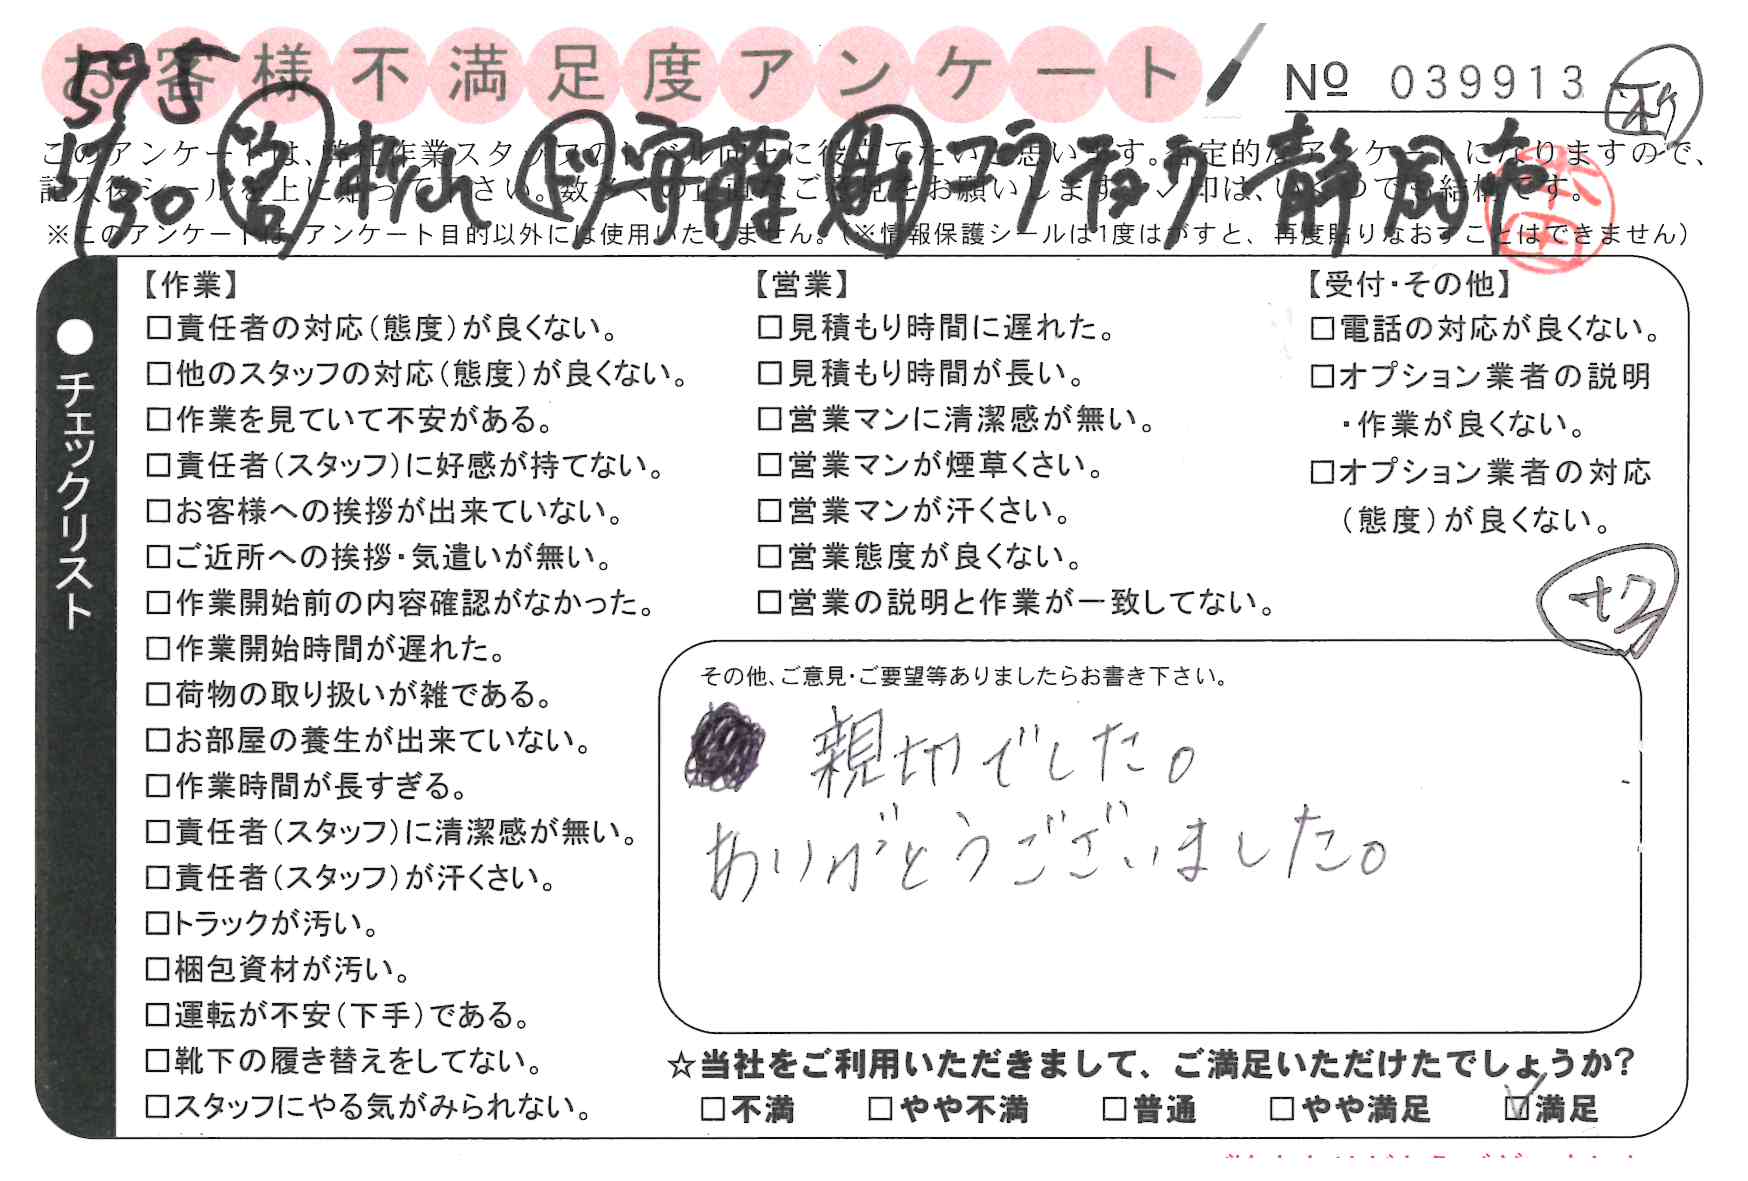 お客様不満足度アンケート
№ 039913
このアンケートは、弊社作業スタッフのレベル向上に役立てたいと思います。否定的なアンケートになりますので、
記入後シールを上に貼って下さい。数多くの正直なご意見をお願いします。✓印は、いくつでも結構です。
※このアンケートは、アンケート目的以外には使用いたしません。(※情報保護シールは1度はがすと、再度貼りなおすことはできません)
1/30
安藤
静岡
●チェックリスト
【作業】
□責任者の対応(態度)が良くない。
□他のスタッフの対応(態度)が良くない。
□作業を見ていて不安がある。
□責任者(スタッフ)に好感が持てない。
□お客様への挨拶が出来ていない。
□ご近所への挨拶・気遣いが無い。
□作業開始前の内容確認がなかった。
□作業開始時間が遅れた。
□荷物の取り扱いが雑である。
□お部屋の養生が出来ていない。
□作業時間が長すぎる。
□責任者(スタッフ)に清潔感が無い。
□責任者(スタッフ)が汗くさい。
□トラックが汚い。
□梱包資材が汚い。
□運転が不安(下手)である。
□靴下の履き替えをしてない。
□スタッフにやる気がみられない。
【営業】
□見積もり時間に遅れた。
□見積もり時間が長い。
□営業マンに清潔感が無い。
□営業マンが煙草くさい。
□営業マンが汗くさい。
□営業態度が良くない。
□営業の説明と作業が一致してない。
【受付・その他】
□電話の対応が良くない。
□オプション業者の説明
・作業が良くない。
□オプション業者の対応
(態度)が良くない。
その他、ご意見・ご要望等ありましたらお書き下さい。
親切でした。
ありがとうございました。
☆当社をご利用いただきまして、ご満足いただけたでしょうか?
□不満 □やや不満 □普通 □やや満足 ☑満足